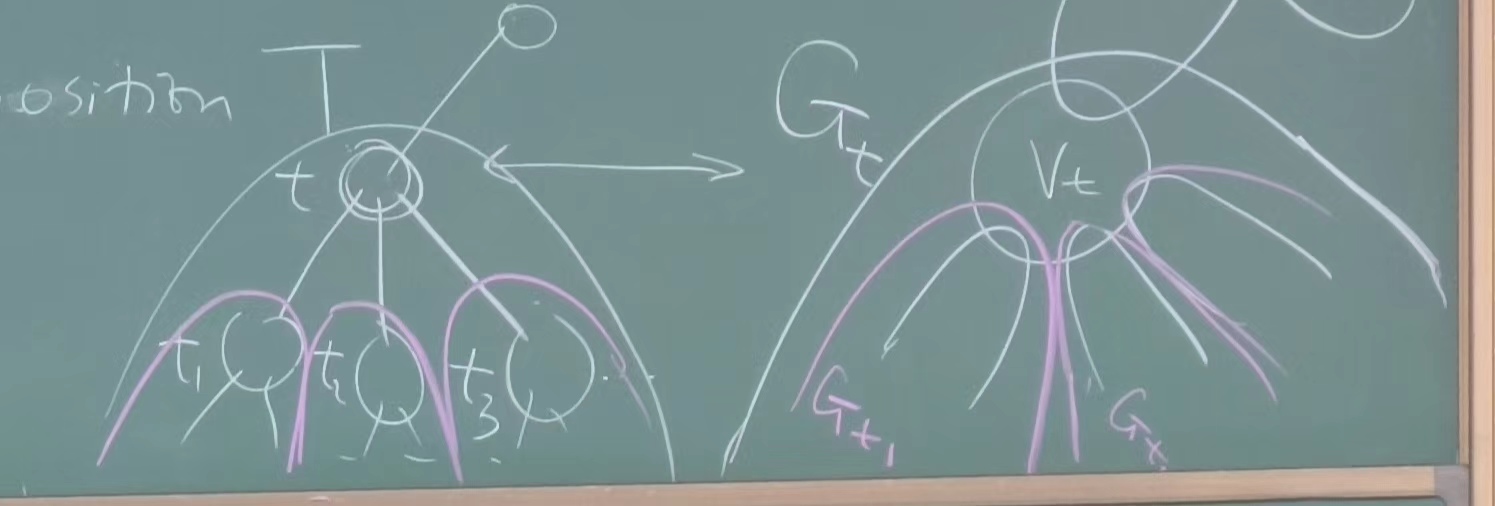 osition
T
t
t₁
t₂
t₃
G_t
V_t
G_t₁
G_t